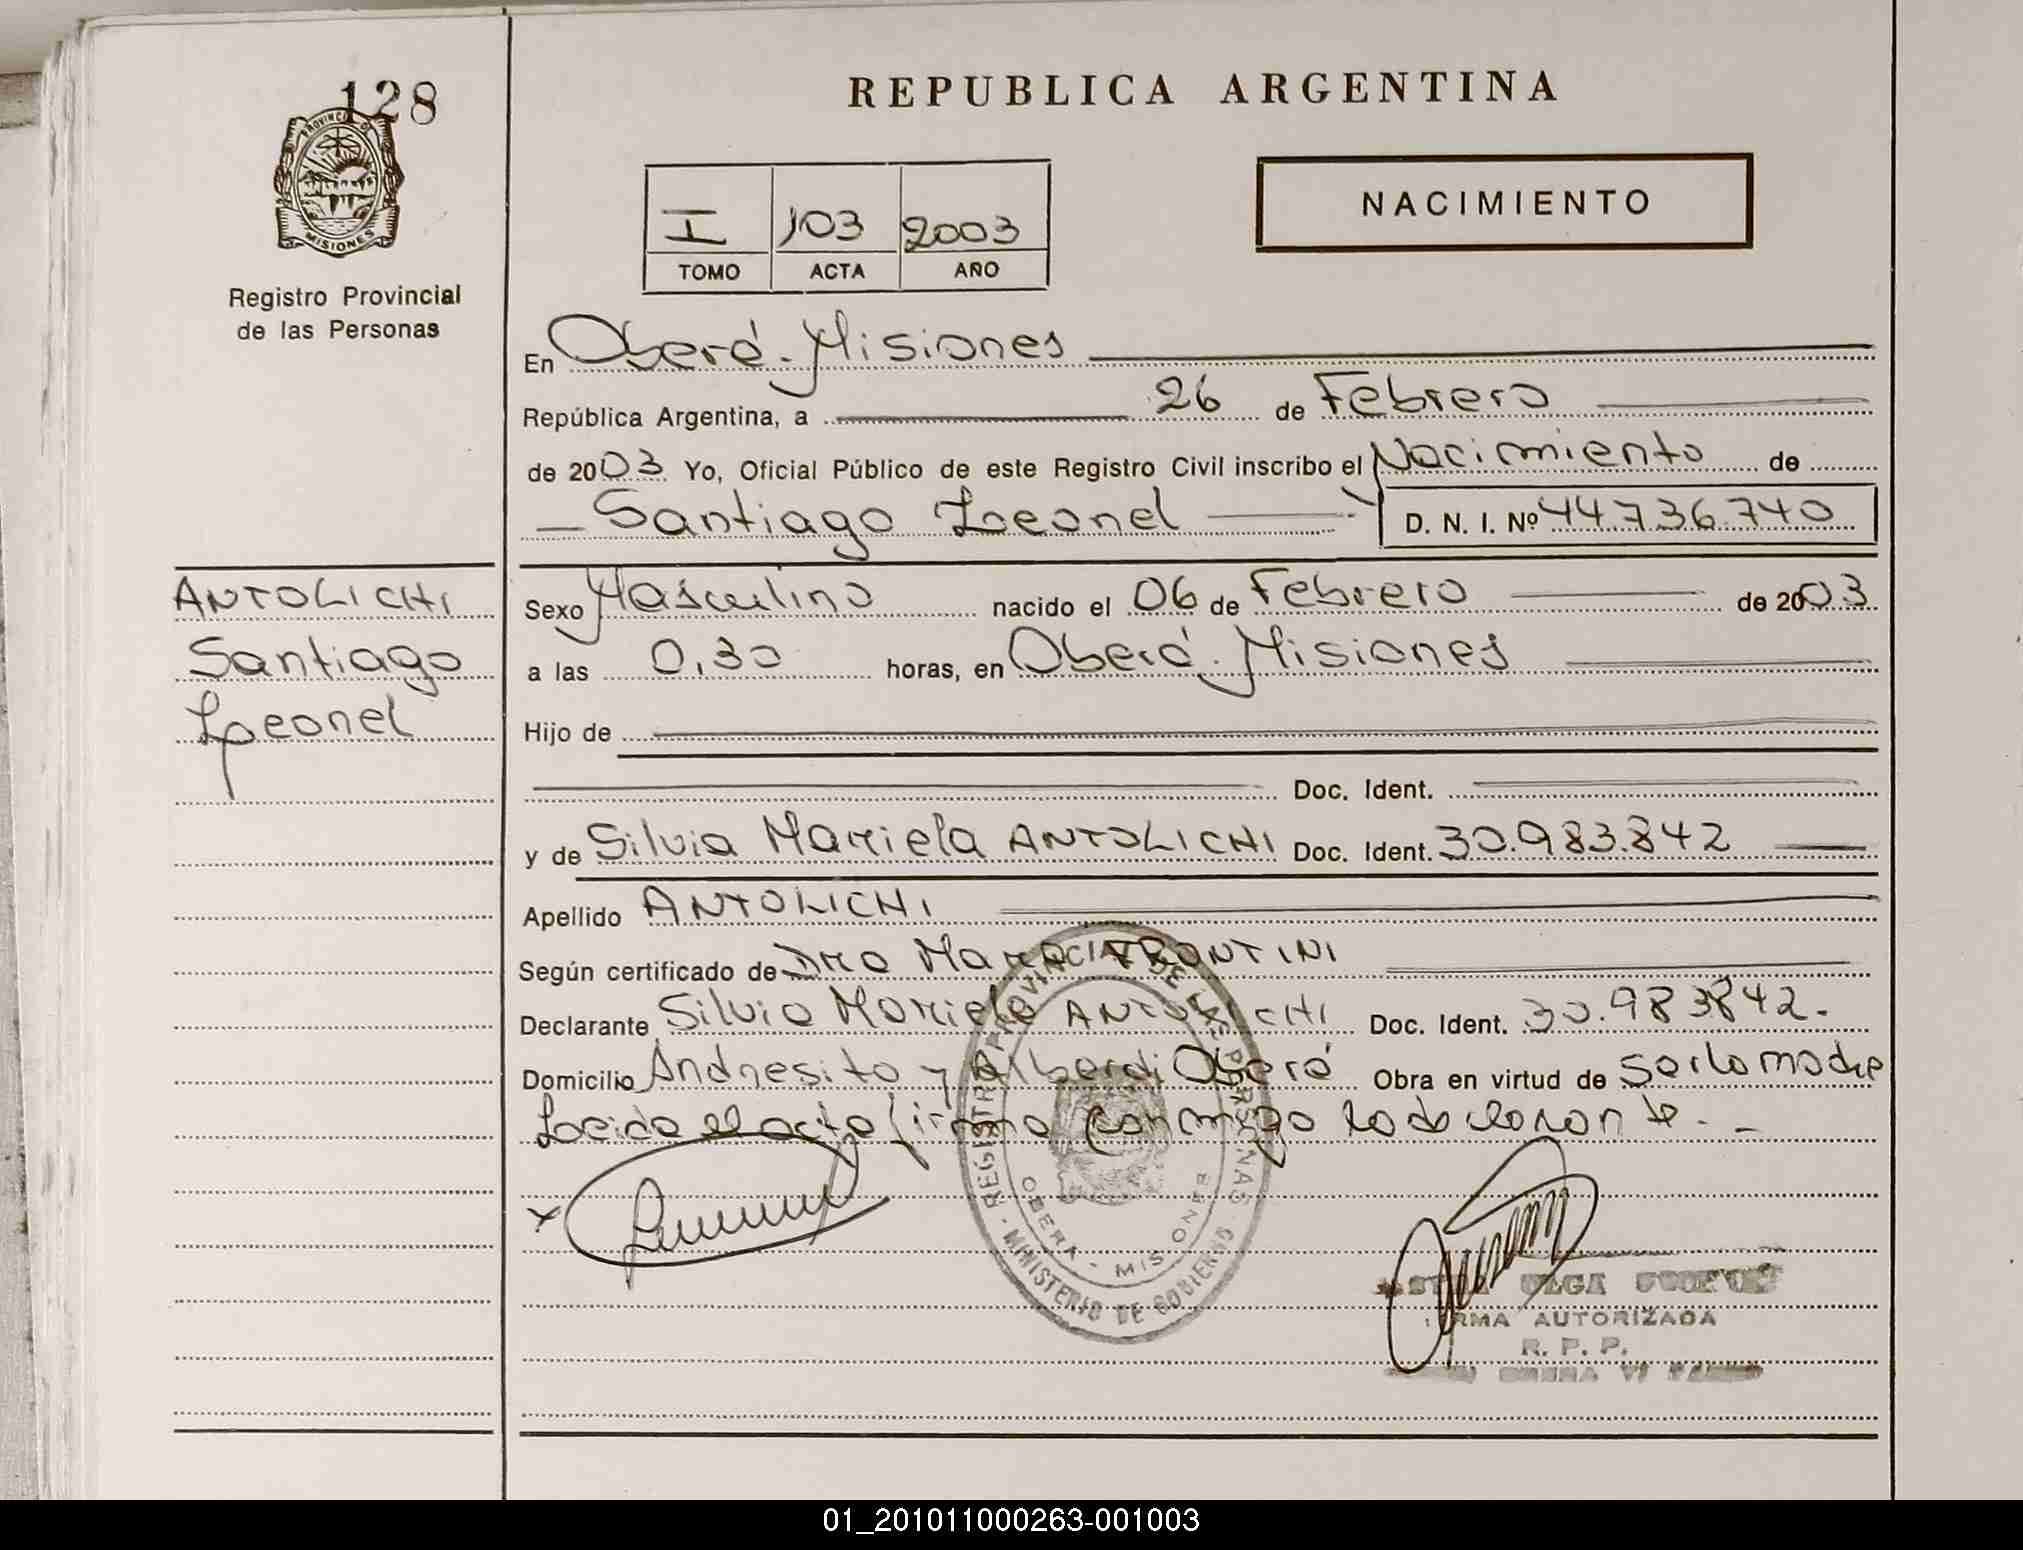 128
REPUBLICA ARGENTINA
PROVINCIA D
MISIONES
Registro Provincial
de las Personas
I 103 2003
TOMO ACTA AÑO
NACIMIENTO
En Oberá - Misiones
República Argentina, a 26 de Febrero
de 2003 Yo, Oficial Público de este Registro Civil inscribo el Nacimiento de
Santiago Leonel D. N. I. Nº 44.736.740
ANTOLICHI
Santiago
Leonel
Sexo Masculino nacido el 06 de Febrero de 2003
a las 0,30 horas, en Oberá - Misiones
Hijo de
Doc. Ident.
y de Silvia Mariela ANTOLICHI Doc. Ident. 30.983.842
Apellido ANTOLICHI
Según certificado de Dra Marcia FRONTINI
Declarante Silvia Mariela ANTOLICHI Doc. Ident. 30.983842.
Domicilio Andresito y Alberdi Oberá Obra en virtud de ser la madre
Leida el acta firma conmigo la declarante. -
REGISTRO PROVINCIAL DE LAS PERSONAS
OBERA - MISIONES
MINISTERIO DE GOBIERNO
x
OLGA
FIRMA AUTORIZADA
R. P. P.
OBERA
01_201011000263-001003